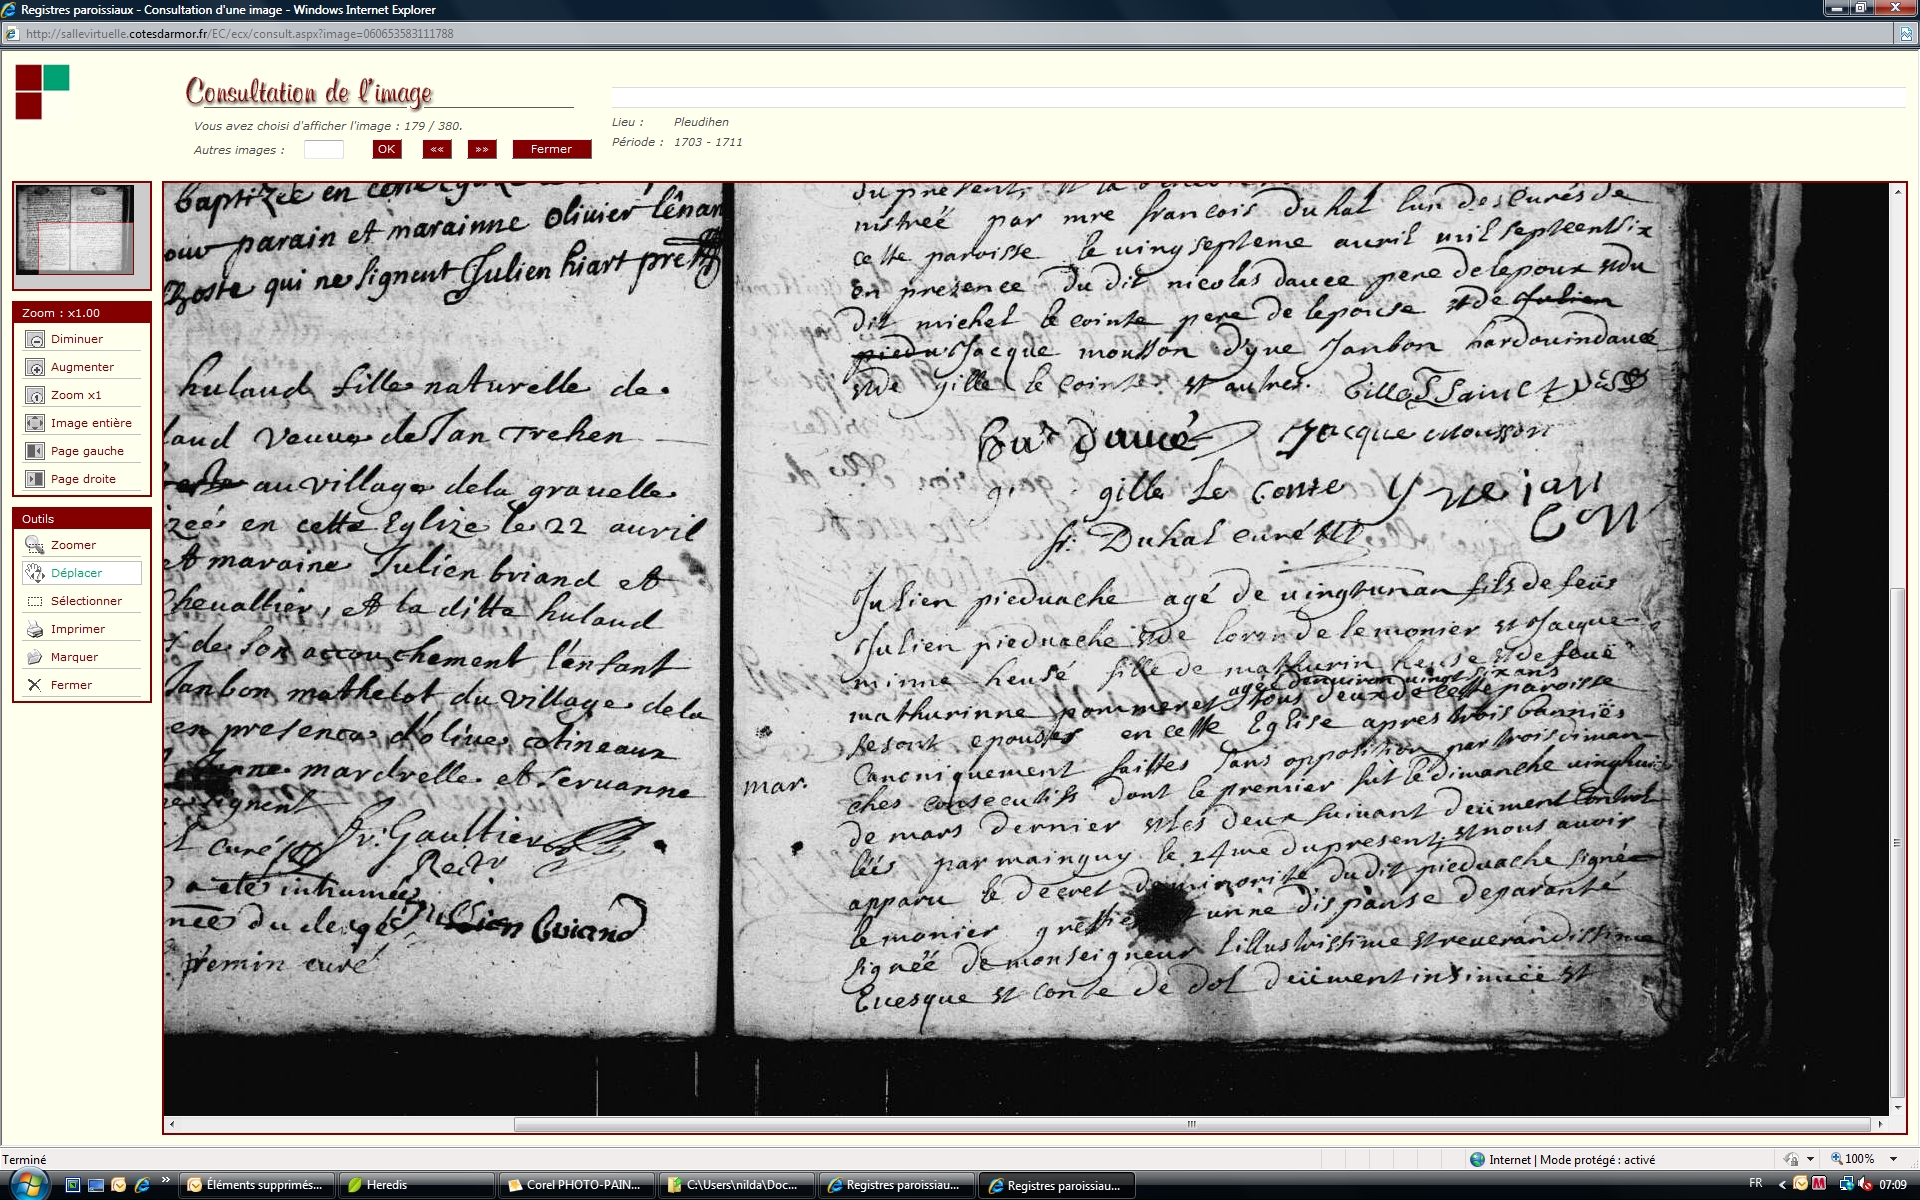 Registres paroissiaux - Consultation d'une image - Windows Internet Explorer
http://sallevirtuelle.cotesdarmor.fr/EC/ecx/consult.aspx?image=060653583111788
Consultation de l'image
Vous avez choisi d'afficher l'image : 179 / 380.
Autres images :
OK
««
»»
Fermer
Lieu : Pleudihen
Période : 1703 - 1711
Zoom : x1.00
Diminuer
Augmenter
Zoom x1
Image entière
Page gauche
Page droite
Outils
Zoomer
Déplacer
Sélectionner
Imprimer
Marquer
Fermer
baptizée en
parain et marainne olivier lénan
qui ne signent Julien hiart
hulaud fille naturelle de
laud veuve de Jan Trehen
au village de la gravelle
en cette Eglize le 22 avril
et maraine Julien briand et
chevallier, et la ditte hulaud
de son accouchement l'enfant
Janbon mathelot du village de la
en presence d'olive colineaux
mardrelle et servanne
signent
curé fr: Gaultier
Rectr
a eté inhumée
du clergé Julien Briand
fremin curé
du present, et la
nistreé par mre francois duhal lun des curés de
cette paroisse le vingseptieme avril mil septcentsix
en presence du dit nicolas daucé pere de lepoux et du
dit michel le cointe pere de lepouse et de Julien
piedu Jacque mousson dyve Janbon hardouin daucé
et de gille le cointe et autres. Gille
daucé Jacque Mousson
gille Le Conte yve jan
bon
fr: Duhal curé
Julien pieduache agé de vingt un an fils de feüs
Julien pieduache et de lorande lemonier et Jacque
minne heusé fille de mathurin heuse et de feuë
agée denviron vingt six ans
mathurinne pommeret tous deux de cette paroisse
se sont epousés en cette Eglise apres trois banniës
Canoniquement faittes sans opposition par trois diman-
mar.
ches consecutifs dont le premier fut le dimanche vinghuit
de mars dernier et les deux suivant deüment control
lés par mainguy le 24me du present, et nous avoir
apparu le decret de minorité du dit pieduache signée
lemonier greffier et unne dispanse de paranté
signée de monseigneur Lillustrissime et reverandissime
Evesque et conte de dol deüement insinuëe et
Terminé
Internet | Mode protégé : activé
100%
Éléments supprimés...
Heredis
Corel PHOTO-PAIN...
C:\Users\nilda\Doc...
Registres paroissiau...
Registres paroissiau...
FR
07:09